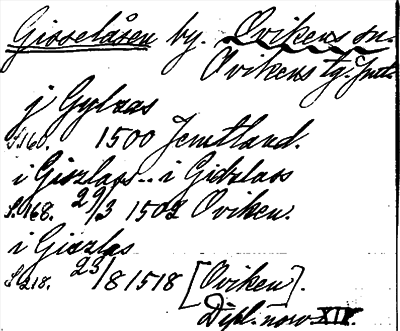 Gisselåsen by. Ovikens sn.
Ovikens tg. Jmtl.
j Gylzaas
S. 160. 1500 Jemtland.
i Giszlaas.. i Gidzlaas
S. 168. 29/3 1502 Oviken.
i Giszlas
S. 218. 23/8 1518 [Oviken].
Dipl. norv. XIV.